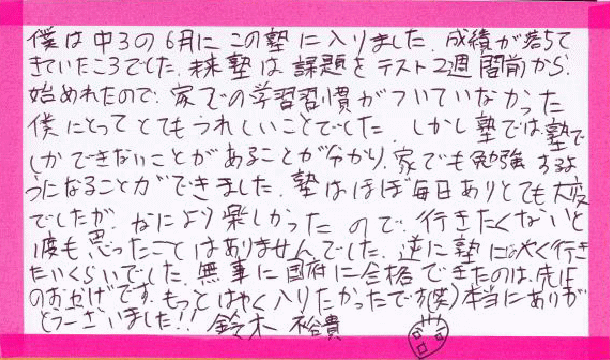 僕は中3の6月にこの塾に入りました。成績が落ちて
きていたころでした。未来塾は課題をテスト2週間前から
始めれたので、家での学習習慣がついていなかった
僕にとってとてもうれしいことでした。しかし塾では、塾で
しかできないことがあることが分かり、家でも勉強するよ
うになることができました。塾はほぼ毎日ありとても大変
でしたが、なにより楽しかったので、行きたくないと
1度も思ったことはありませんでした。逆に塾にはやく行き
たいくらいでした。無事に国府に合格できたのは、先生
のおかげです。もっとはやく入りたかったです(笑)本当にありが
とうございました!! 鈴木 裕貴